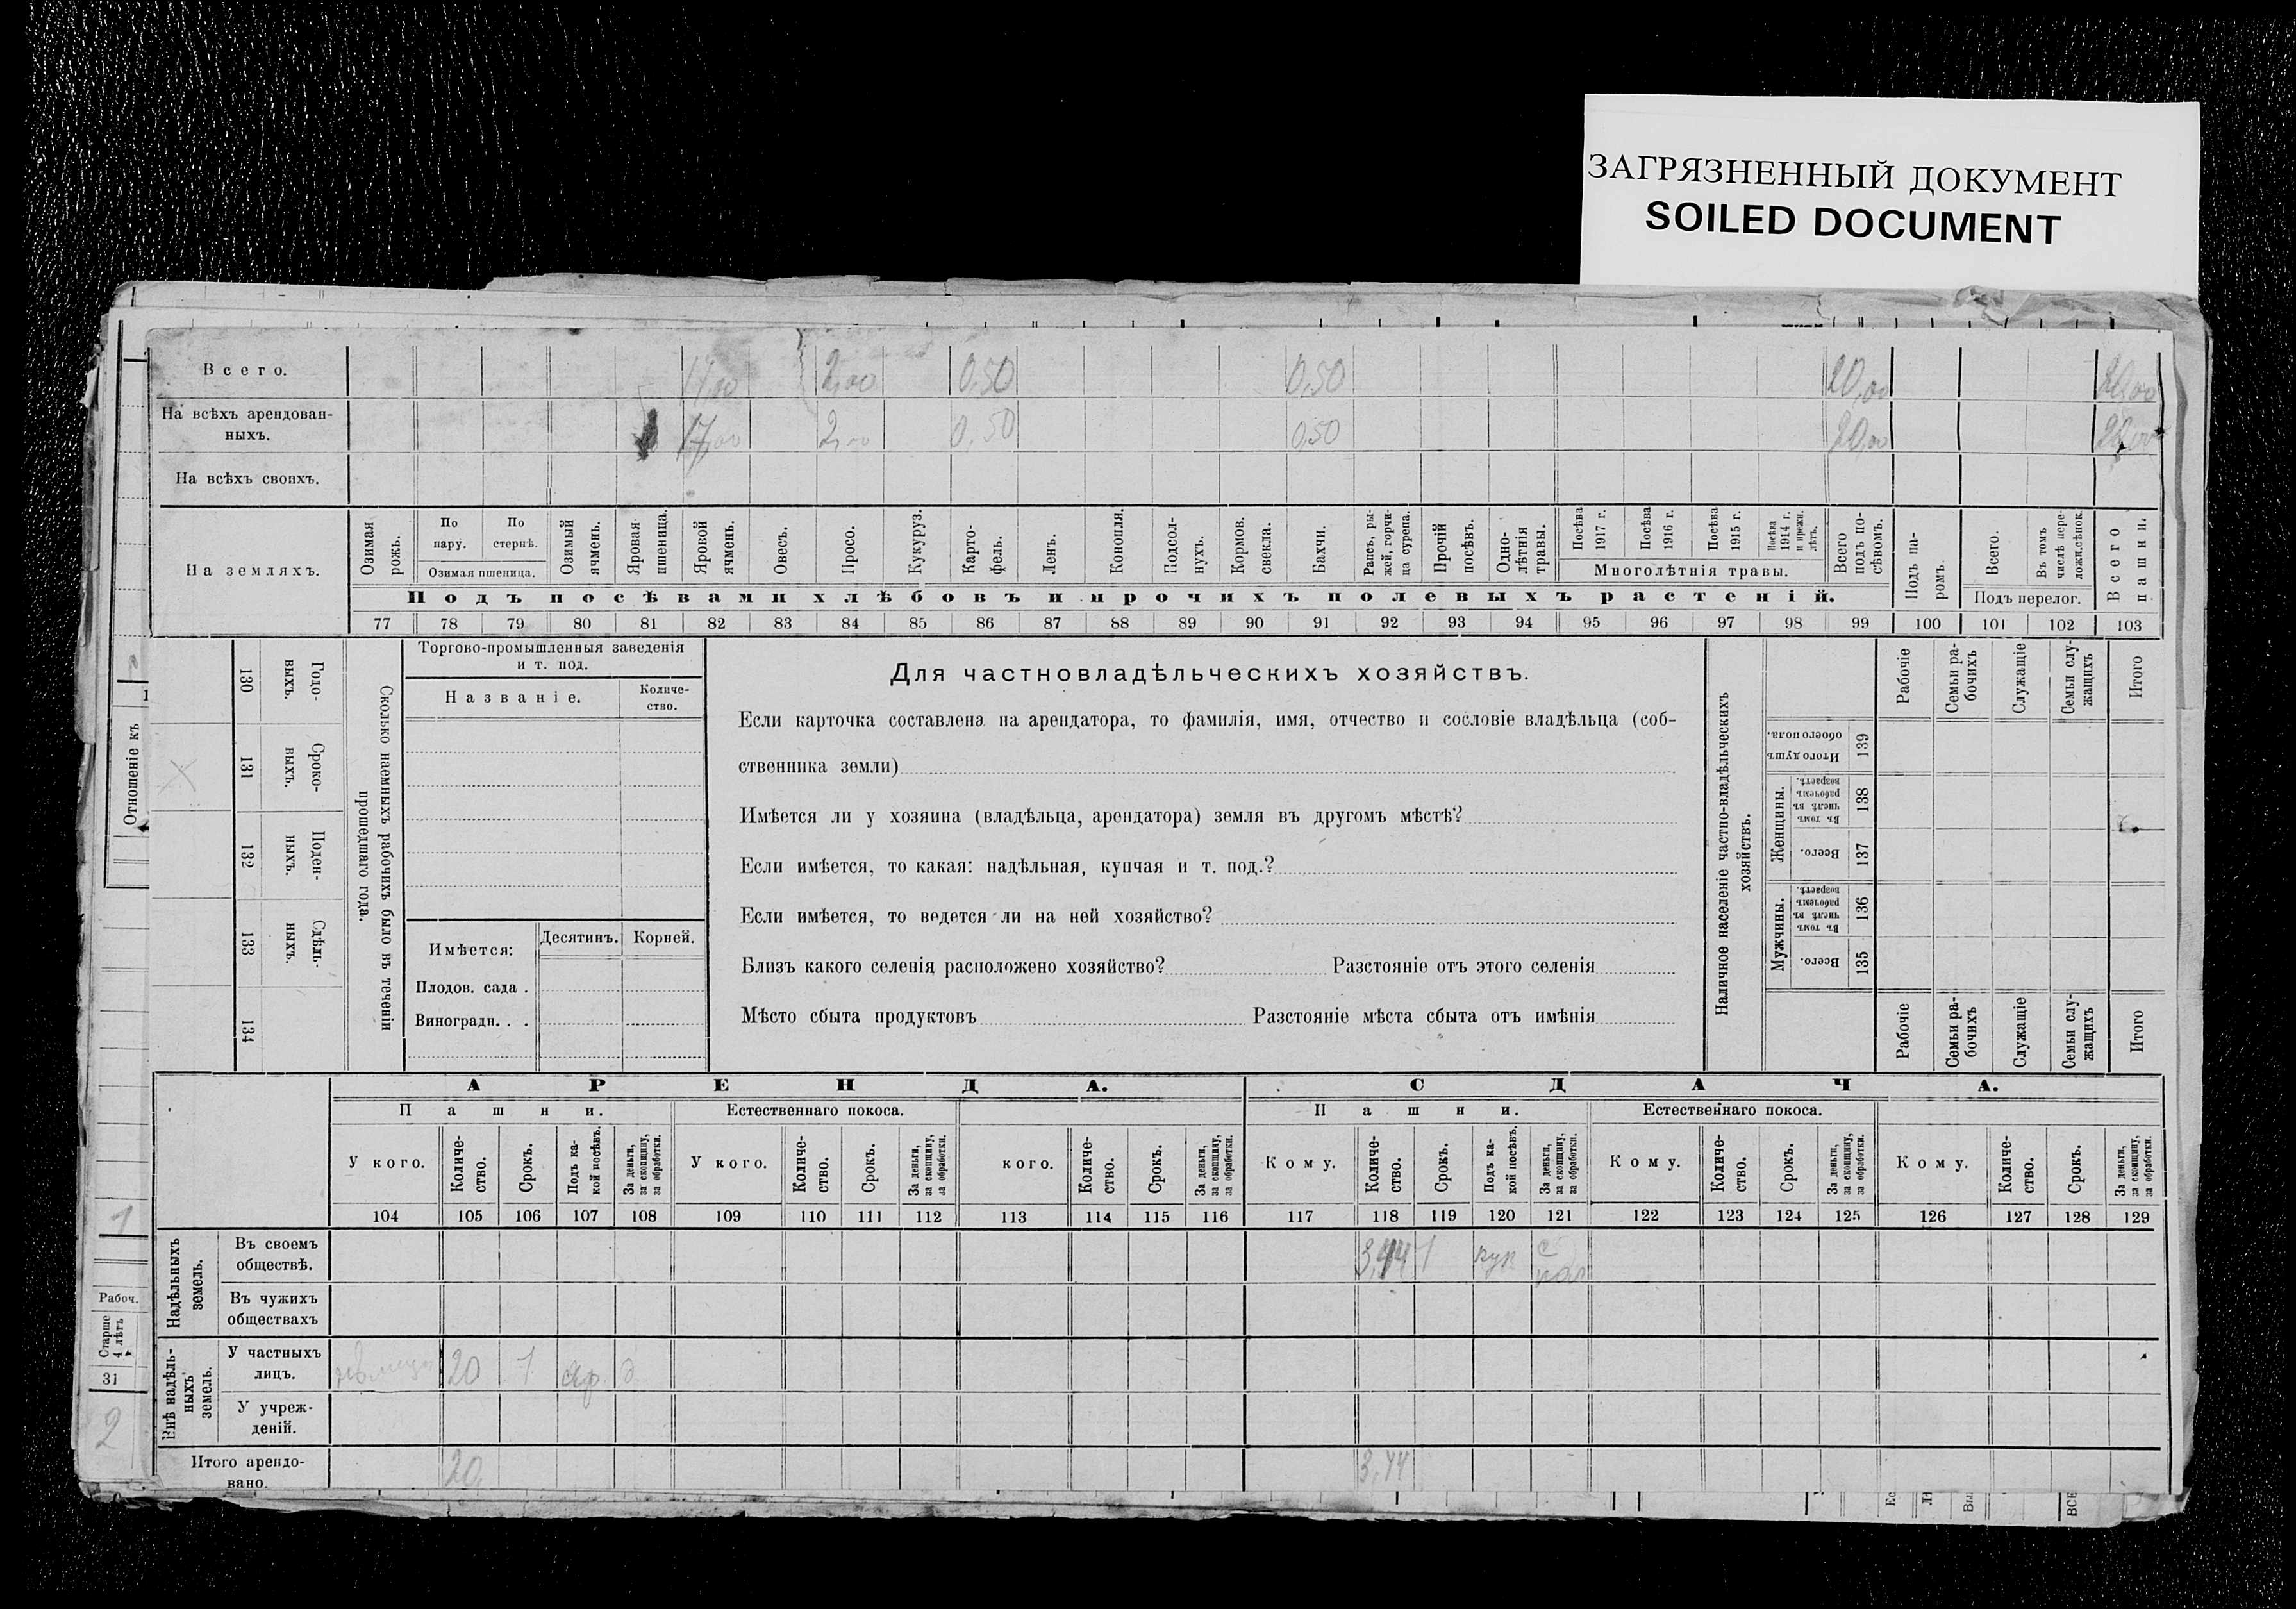 ЗАГРЯЗНЕННЫЙ ДОКУМЕНТ
SOILED DOCUMENT
Всего. 17,00 2,00 0,50 0,50 20,00 20,00
На всѣхъ арендован-
ныхъ. 17,00 2,00 0,50 0,50 20,00 20,00
На всѣхъ своихъ.
На земляхъ.
Озимая рожь.
По пару.
По стернѣ.
Озимая пшеница.
Озимый ячмень.
Яровая пшеница.
Яровой ячмень.
Овесъ.
Просо.
Кукуруз.
Карто-
фель.
Ленъ.
Конопля.
Подсол-
нухъ.
Кормов. свекла.
Бахчи.
Рапсъ, ры-
жей, горчи-
ца сурепа.
Прочій посѣвъ.
Одно-
лѣтнія травы.
Посѣва 1917 г.
Посѣва 1916 г.
Посѣва 1915 г.
Посѣва 1914 г. и прежн. лѣтъ.
Многолѣтнія травы.
Всего подъ по-
сѣвомъ.
Подъ па-
ромъ.
Всего.
Въ томъ числѣ пере-
ложн.сѣнок.
Подъ перелог.
Всего пашни.
Подъ посѣвами хлѣбовъ и прочихъ полевыхъ растеній.
77 78 79 80 81 82 83 84 85 86 87 88 89 90 91 92 93 94 95 96 97 98 99 100 101 102 103
Отношеніе къ
130 Годо-
ныхъ.
131 Сроко-
ныхъ.
132 Поден-
ныхъ.
133 Сдѣль-
ныхъ.
134
Сколько наемныхъ рабочихъ было въ теченіи
прошедшаго года.
Торгово-промышленныя заведенія
и т. под.
Названіе.
Количе-
ство.
Имѣется:
Десятинъ.
Корней.
Плодов. сада .
Виноградн. . .
Для частновладѣльческихъ хозяйствъ.
Если карточка составлена на арендатора, то фамилія, имя, отчество и сословіе владѣльца (соб-
ственника земли)
Имѣется ли у хозяина (владѣльца, арендатора) земля въ другомъ мѣстѣ?
Если имѣется, то какая: надѣльная, купчая и т. под.?
Если имѣется, то ведется ли на ней хозяйство?
Близъ какого селенія расположено хозяйство? Разстояніе отъ этого селенія
Мѣсто сбыта продуктовъ Разстояніе мѣста сбыта отъ имѣнія
Наличное населеніе частно-владѣльческихъ
хозяйствъ.
Рабочіе
Семьи ра-
бочихъ
Служащіе
Семьи слу-
жащихъ
Итого
Итого душъ обоего пола. 139
Женщины.
Въ томъ числѣ въ рабочемъ возрастѣ. 138
Всего. 137
Мужчины.
Въ томъ числѣ въ рабочемъ возрастѣ. 136
Всего. 135
Рабочіе
Семьи ра-
бочихъ
Служащіе
Семьи слу-
жащихъ
Итого
АРЕНДА. СДАЧА.
Пашни. Естественнаго покоса. Пашни. Естественнаго покоса.
У кого.
Количе-
ство.
Срокъ.
Подъ ка-
кой посѣвъ.
За деньги,
за скопщину,
за обработки.
У кого.
Количе-
ство.
Срокъ.
За деньги,
за скопщину,
за обработки.
кого.
Количе-
ство.
Срокъ.
За деньги,
за скопщину,
за обработки.
Кому.
Количе-
ство.
Срокъ.
Подъ ка-
кой посѣвъ.
За деньги,
за скопщину,
за обработки.
Кому.
Количе-
ство.
Срокъ.
За деньги,
за скопщину,
за обработки.
Кому.
Количе-
ство.
Срокъ.
За деньги,
за скопщину,
за обработки.
104 105 106 107 108 109 110 111 112 113 114 115 116 117 118 119 120 121 122 123 124 125 126 127 128 129
1
Надѣльныхъ
земель.
Въ своемъ
обществѣ. 3,44 1 кур
Въ чужихъ
обществахъ
Рабоч.
Старше
4 лѣтъ
31
2
Внѣ надѣль-
ныхъ
земель.
У частныхъ
лицъ. 20 1 яр. д
У учреж-
деній.
Итого арендо-
вано. 20 3,44